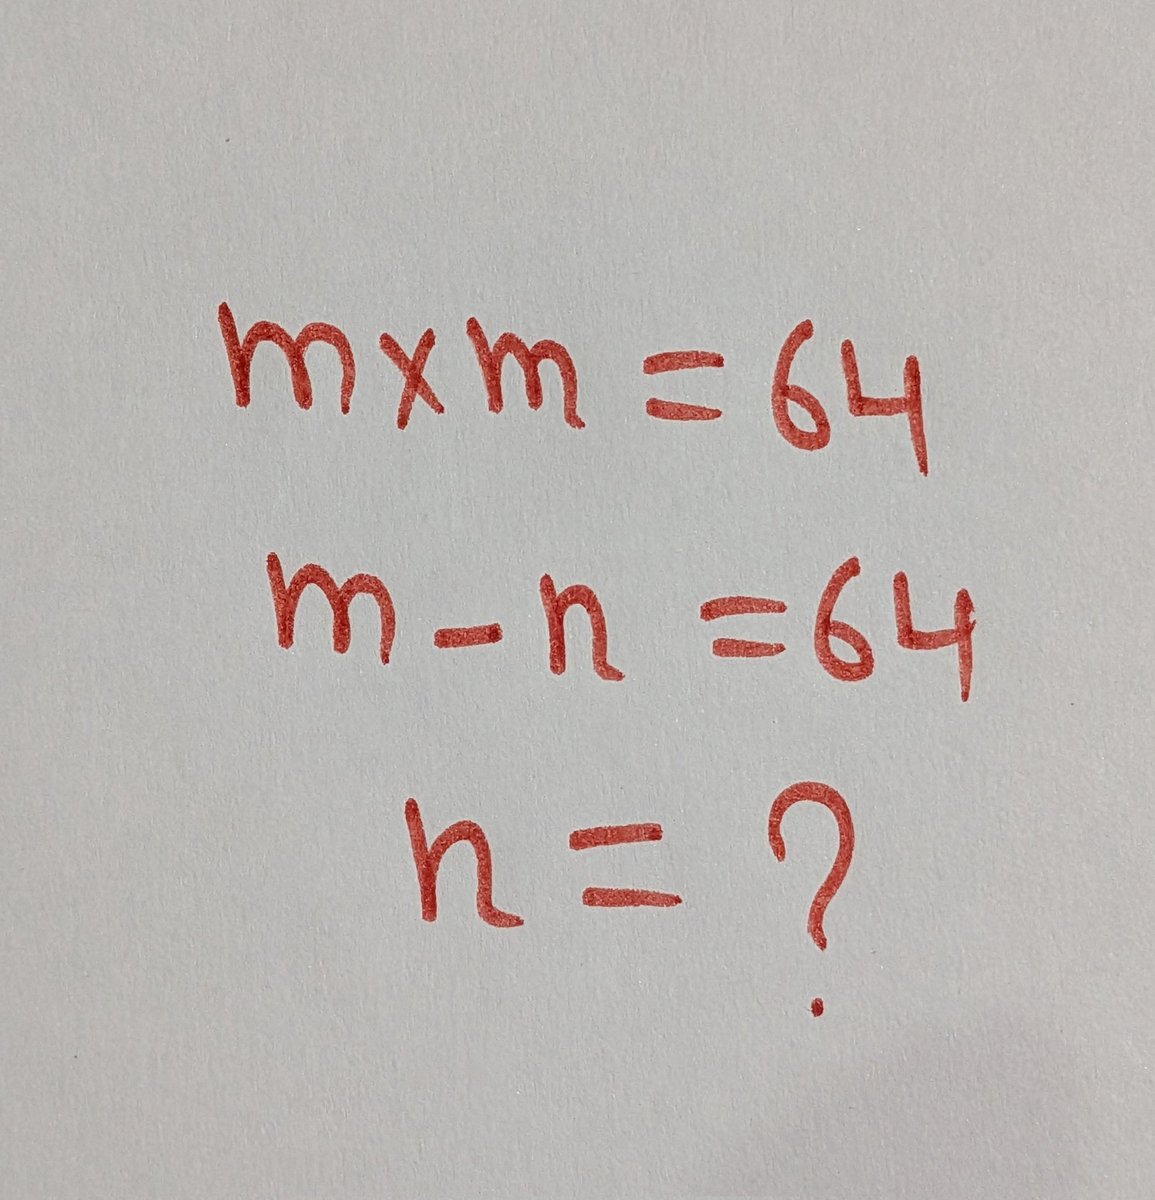 m x m = 64
m - n = 64
n = ?